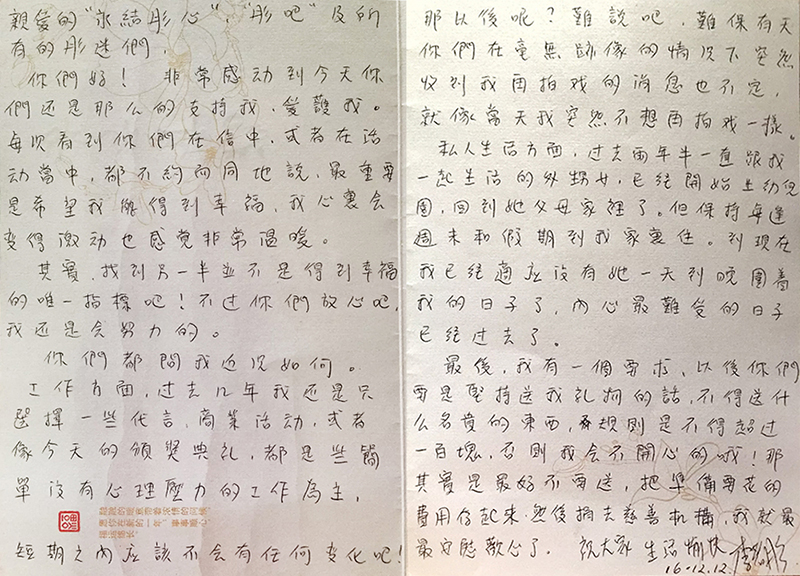 親爱的“永結彤心”，“彤吧”及所
有的彤迷們，
你們好！非常感动到今天你
們还是那么的支持我，愛護我。
每次看到你們在信中，或者在活
动當中，都不約而同地説，最重要
是希望我能得到幸福，我心裏会
变得激动也感觉非常温暖。
其實，找到另一半並不是得到幸福
的唯一指標吧！不过你們放心吧，
我还是会努力的。
你們都問我近况如何。
工作方面，过去几年我还是只
選擇一些代言，商業活动，或者
像今天的頒獎典礼，都是些簡
單没有心理壓力的工作為主，
短期之內应該不会有任何变化吧！
那以後呢？難説吧，難保有天
你們在毫無跡像的情况下突然
收到我再拍戏的消息也不定，
就像當天我突然不想再拍戏一樣。
私人生活方面，过去两年半一直跟我
一起生活的外甥女，已经開始上幼兒
園，回到她父母家裡了。但保持每逢
週末和假期到我家裏住。到现在
我已经適应没有她一天到晚圍着
我的日子了，內心最難受的日子
已经过去了。
最後，我有一個要求，以後你們
要是堅持送我礼物的話，不得送什
么名貴的東西，規則是不得超过
一百塊，否則我会不開心的哦！那
其實是最好不要送，把準備要花的
費用存起来，然後捐去慈善机構，我就最
最安慰歡心了。祝大家生活愉快
16.12.12.